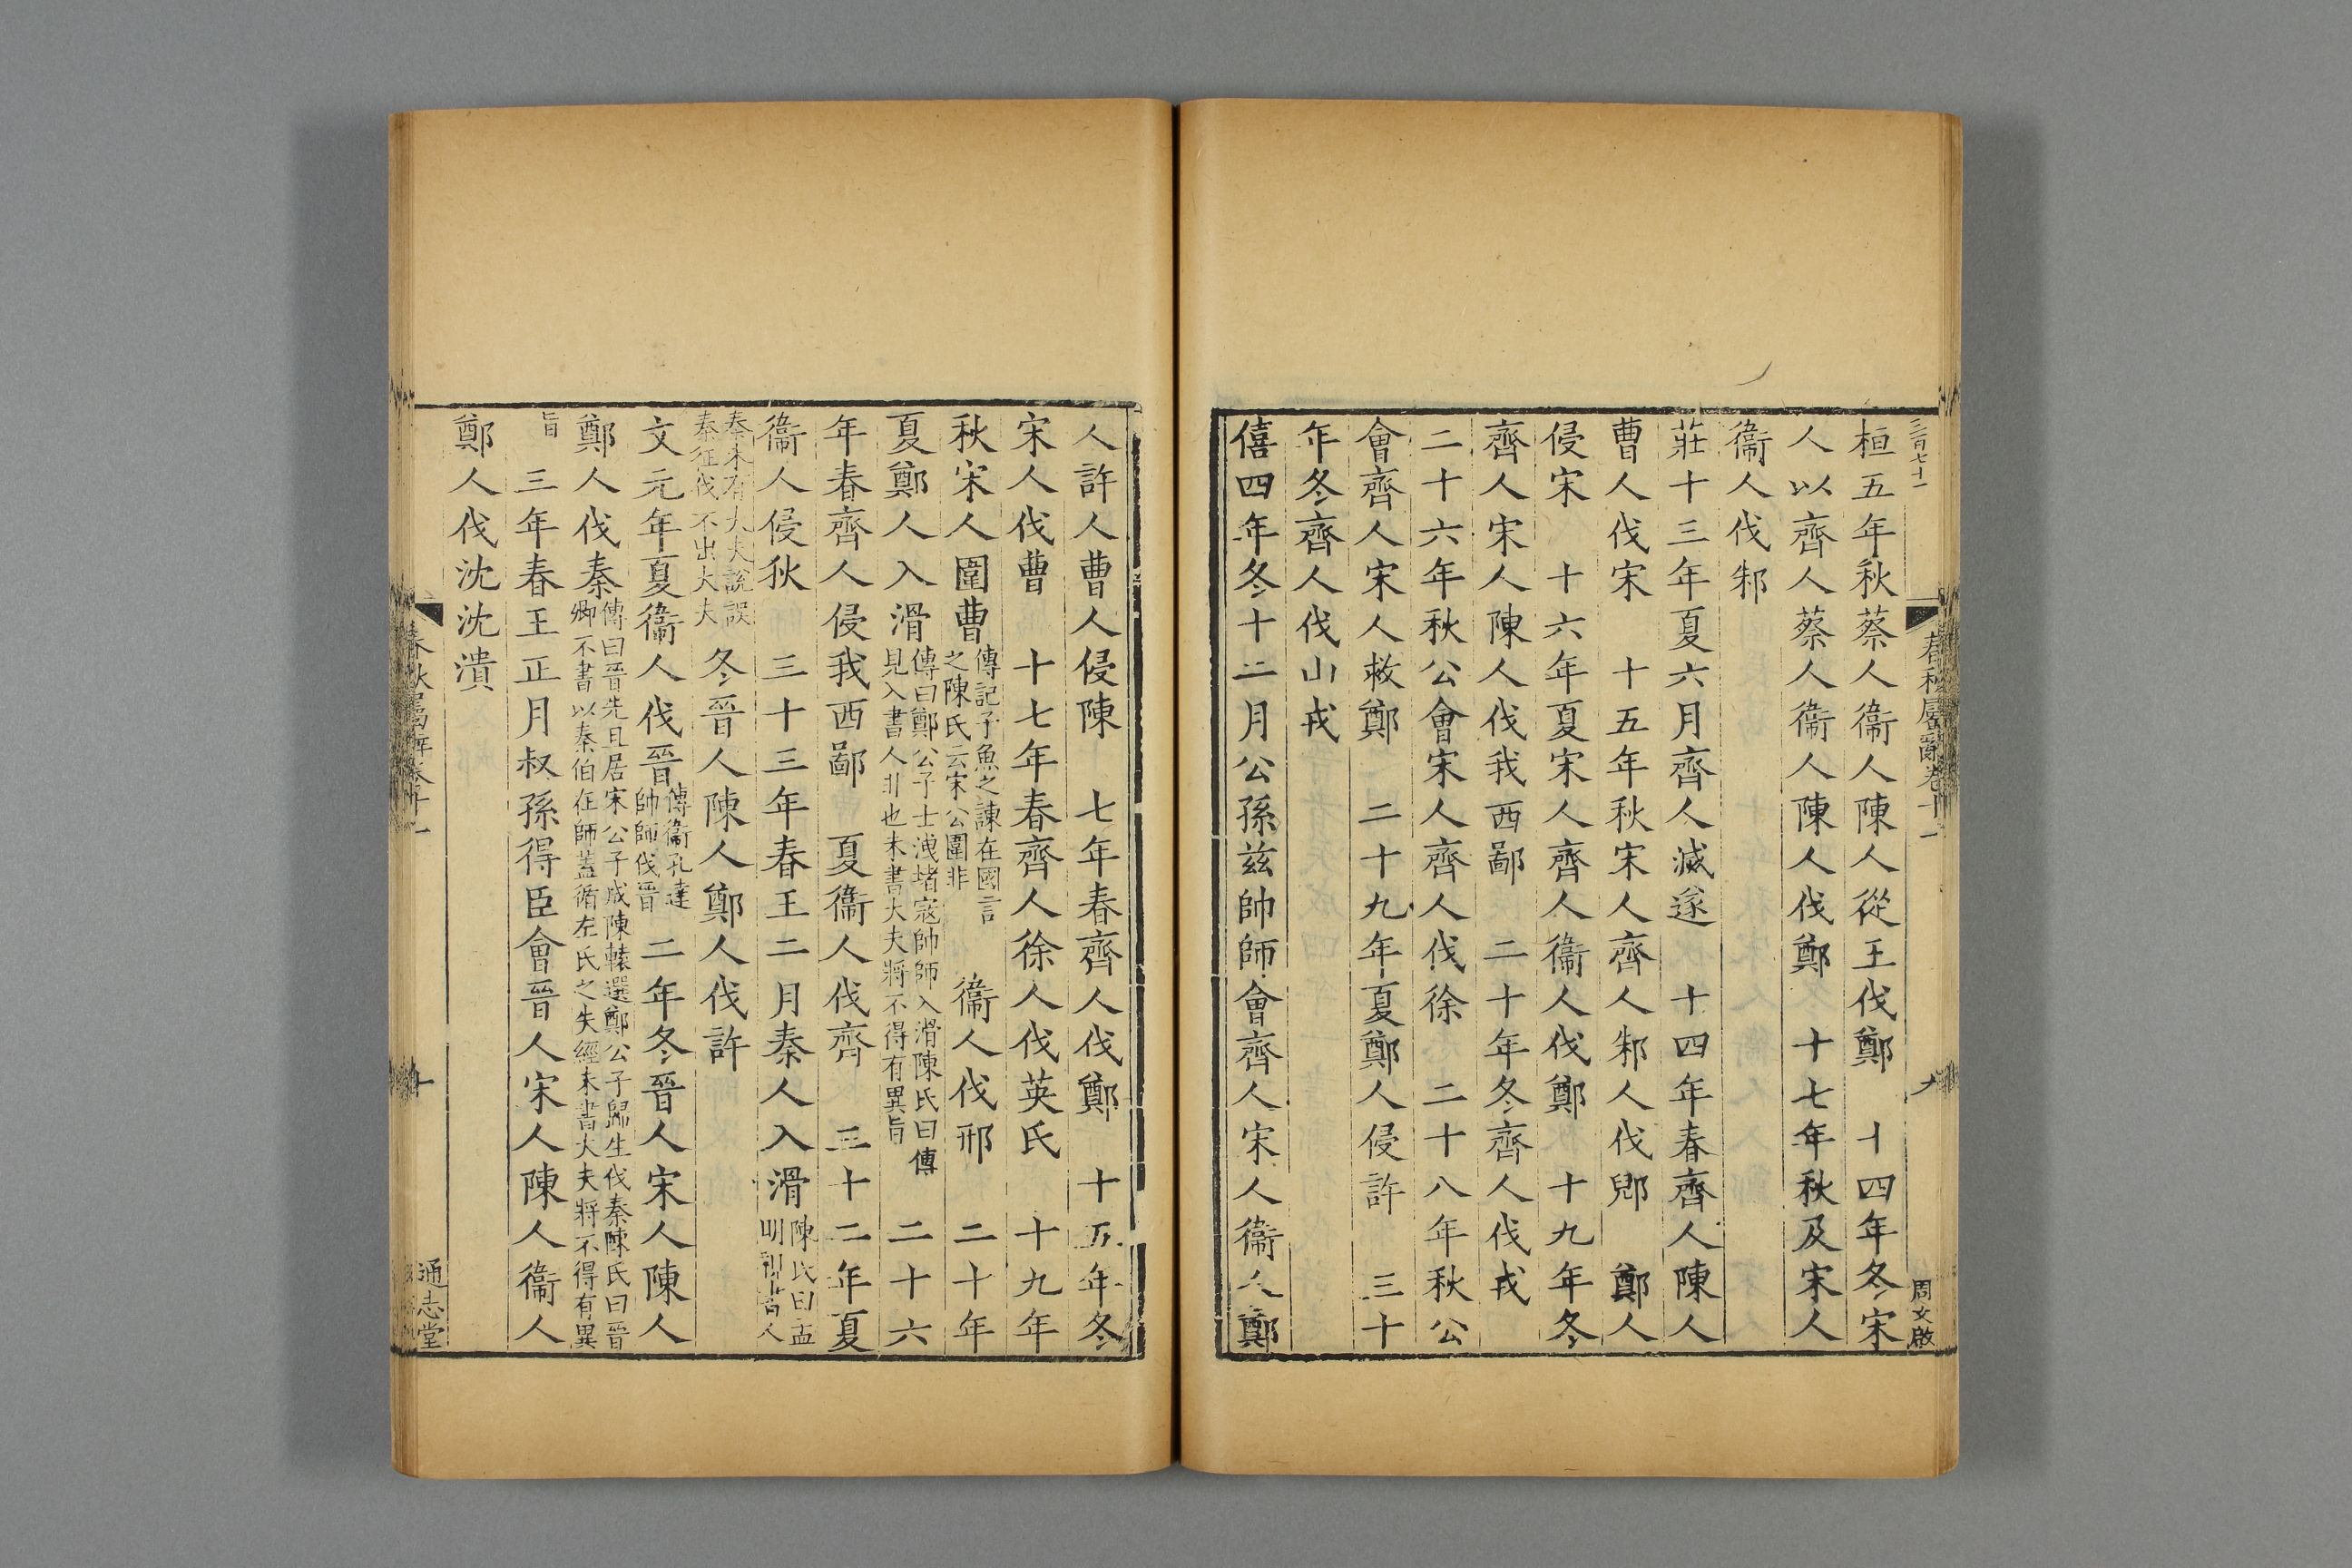 三百七十一
春秋屬辭卷十一
九
周文啟
桓五年秋蔡人衞人陳人從王伐鄭　十四年冬宋
人以齊人蔡人衞人陳人伐鄭　十七年秋及宋人
衞人伐邾
莊十三年夏六月齊人滅遂　十四年春齊人陳人
曹人伐宋　十五年秋宋人齊人邾人伐郳　鄭人
侵宋　十六年夏宋人齊人衞人伐鄭　十九年冬
齊人宋人陳人伐我西鄙　二十年冬齊人伐戎
二十六年秋公會宋人齊人伐徐　二十八年秋公
會齊人宋人救鄭　二十九年夏鄭人侵許　三十
年冬齊人伐山戎
僖四年冬十二月公孫茲帥師會齊人宋人衞人鄭
人許人曹人侵陳　七年春齊人伐鄭　十五年冬
宋人伐曹　十七年春齊人徐人伐英氏　十九年
秋宋人圍曹傳記子魚之諫在國言之陳氏云宋公圍非　衞人伐邢　二十年
夏鄭人入滑傳曰鄭公子士洩堵寇帥師入滑陳氏曰傳見入書人非也未書大夫將不得有異旨　二十六
年春齊人侵我西鄙　夏衞人伐齊　三十二年夏
衞人侵狄　三十三年春王二月秦人入滑陳氏曰孟明則其言人
秦未有大夫說誤秦征伐不出大夫　冬晉人陳人鄭人伐許
文元年夏衞人伐晉傳衞孔達帥師伐晉　二年冬晉人宋人陳人
鄭人伐秦傳曰晉先且居宋公子成陳轅選鄭公子歸生伐秦陳氏曰晉卿不書以秦伯在師蓋循左氏之失經未書大夫將不得有異
旨　三年春王正月叔孫得臣會晉人宋人陳人衞人
鄭人伐沈沈潰
春秋屬辭卷十一
十
通志堂